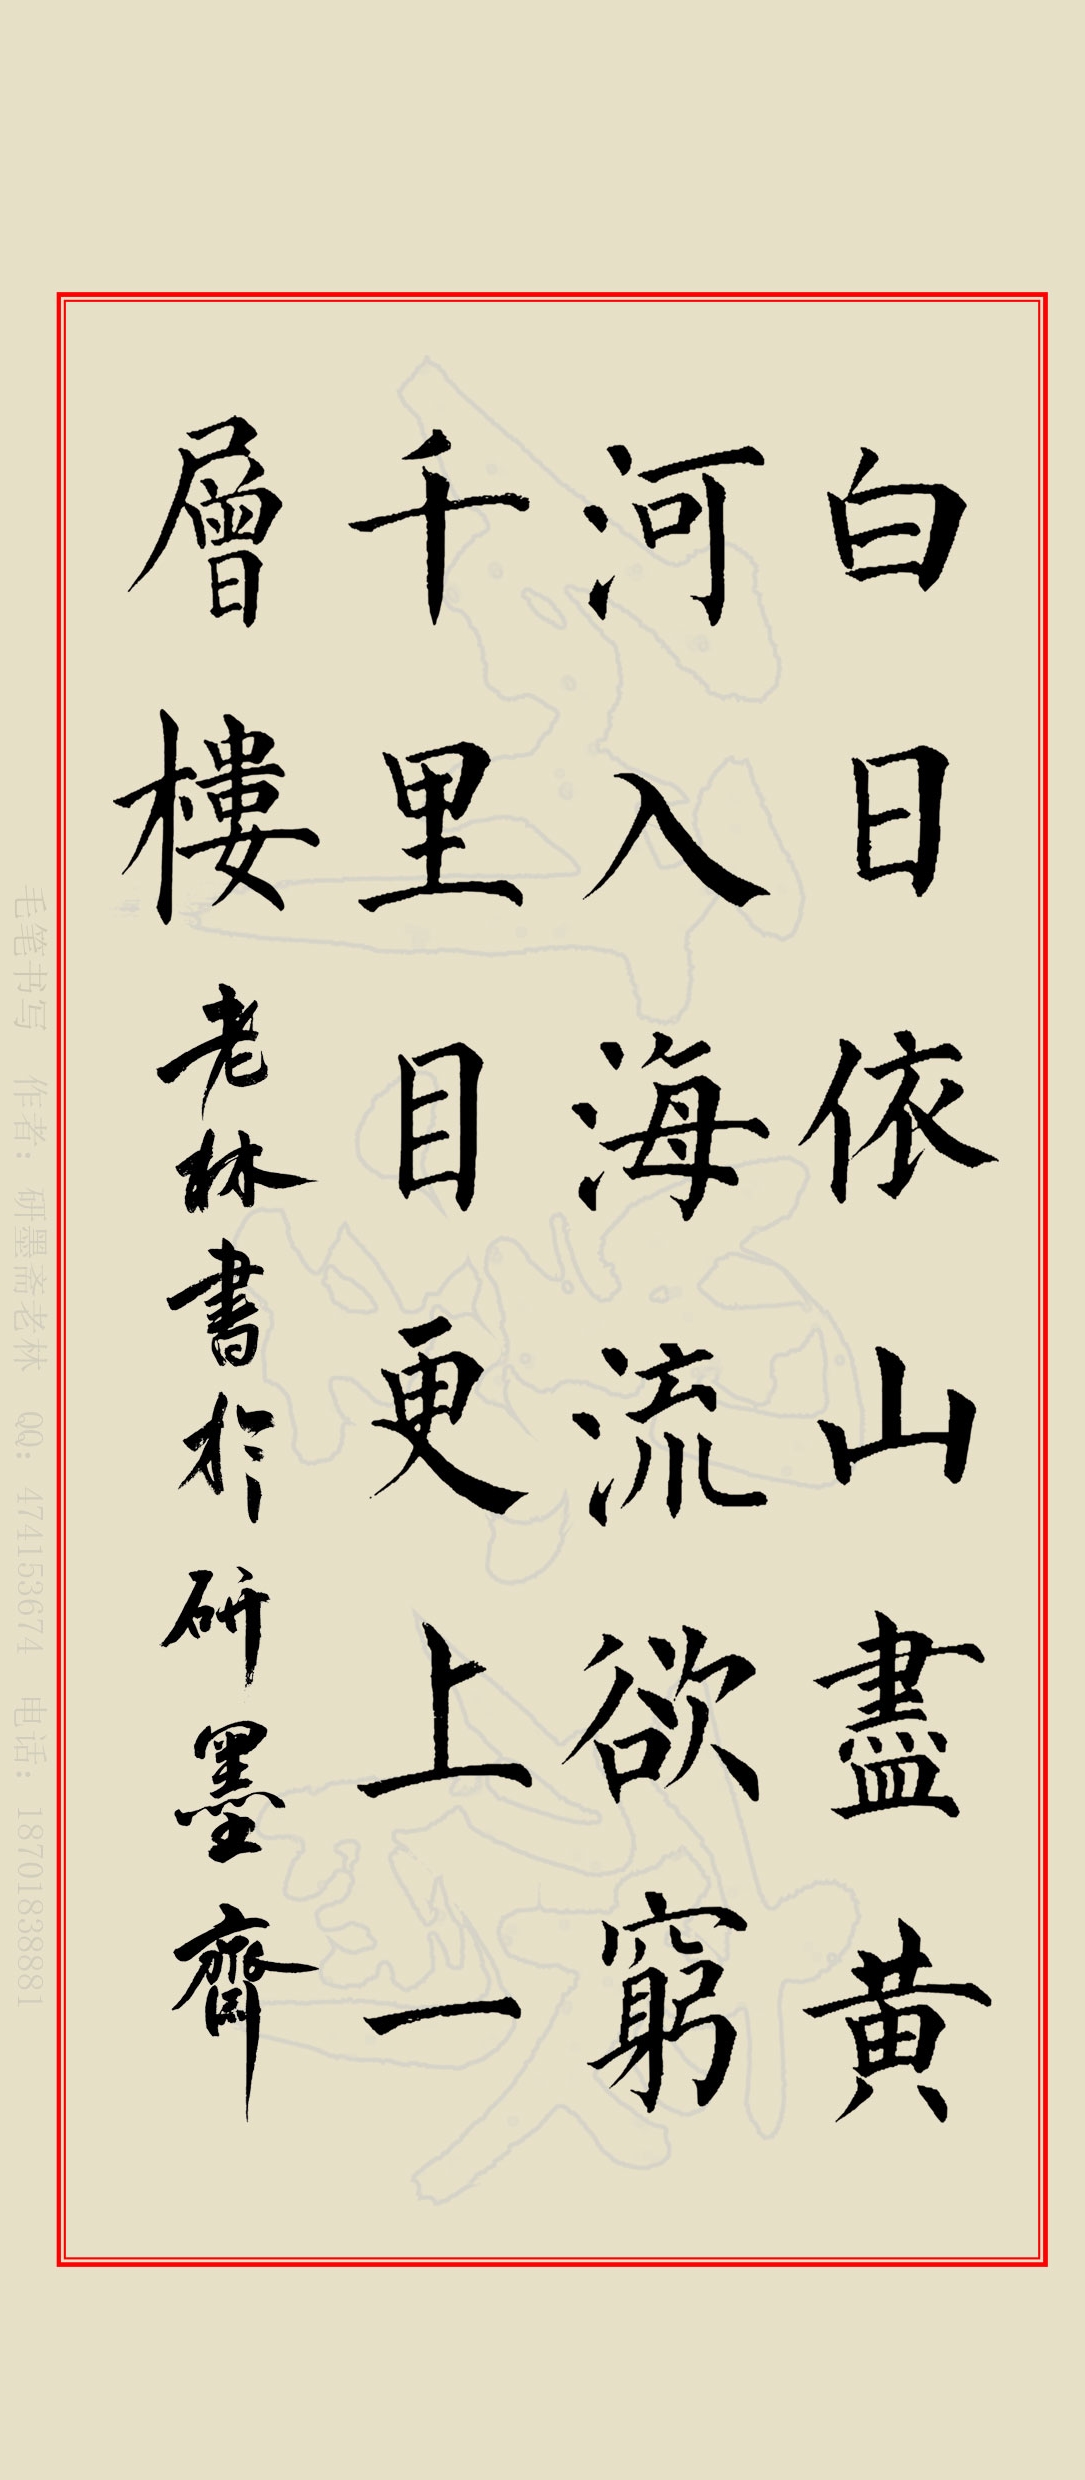 白日依山盡黃
河入海流欲窮
千里目更上一
層樓 老林書於研墨齋
毛笔书写 作者: 研墨斋老林 QQ: 474153674 电话: 18701838881